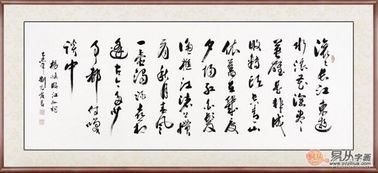 滚滚长江东逝
水浪花淘尽
英雄是非成
败转头空青山
依旧在几度
夕阳红白发
渔樵江渚上惯
看秋月春风
一壶浊酒喜相
逢古今多少
事都付笑
谈中
杨慎临江仙词